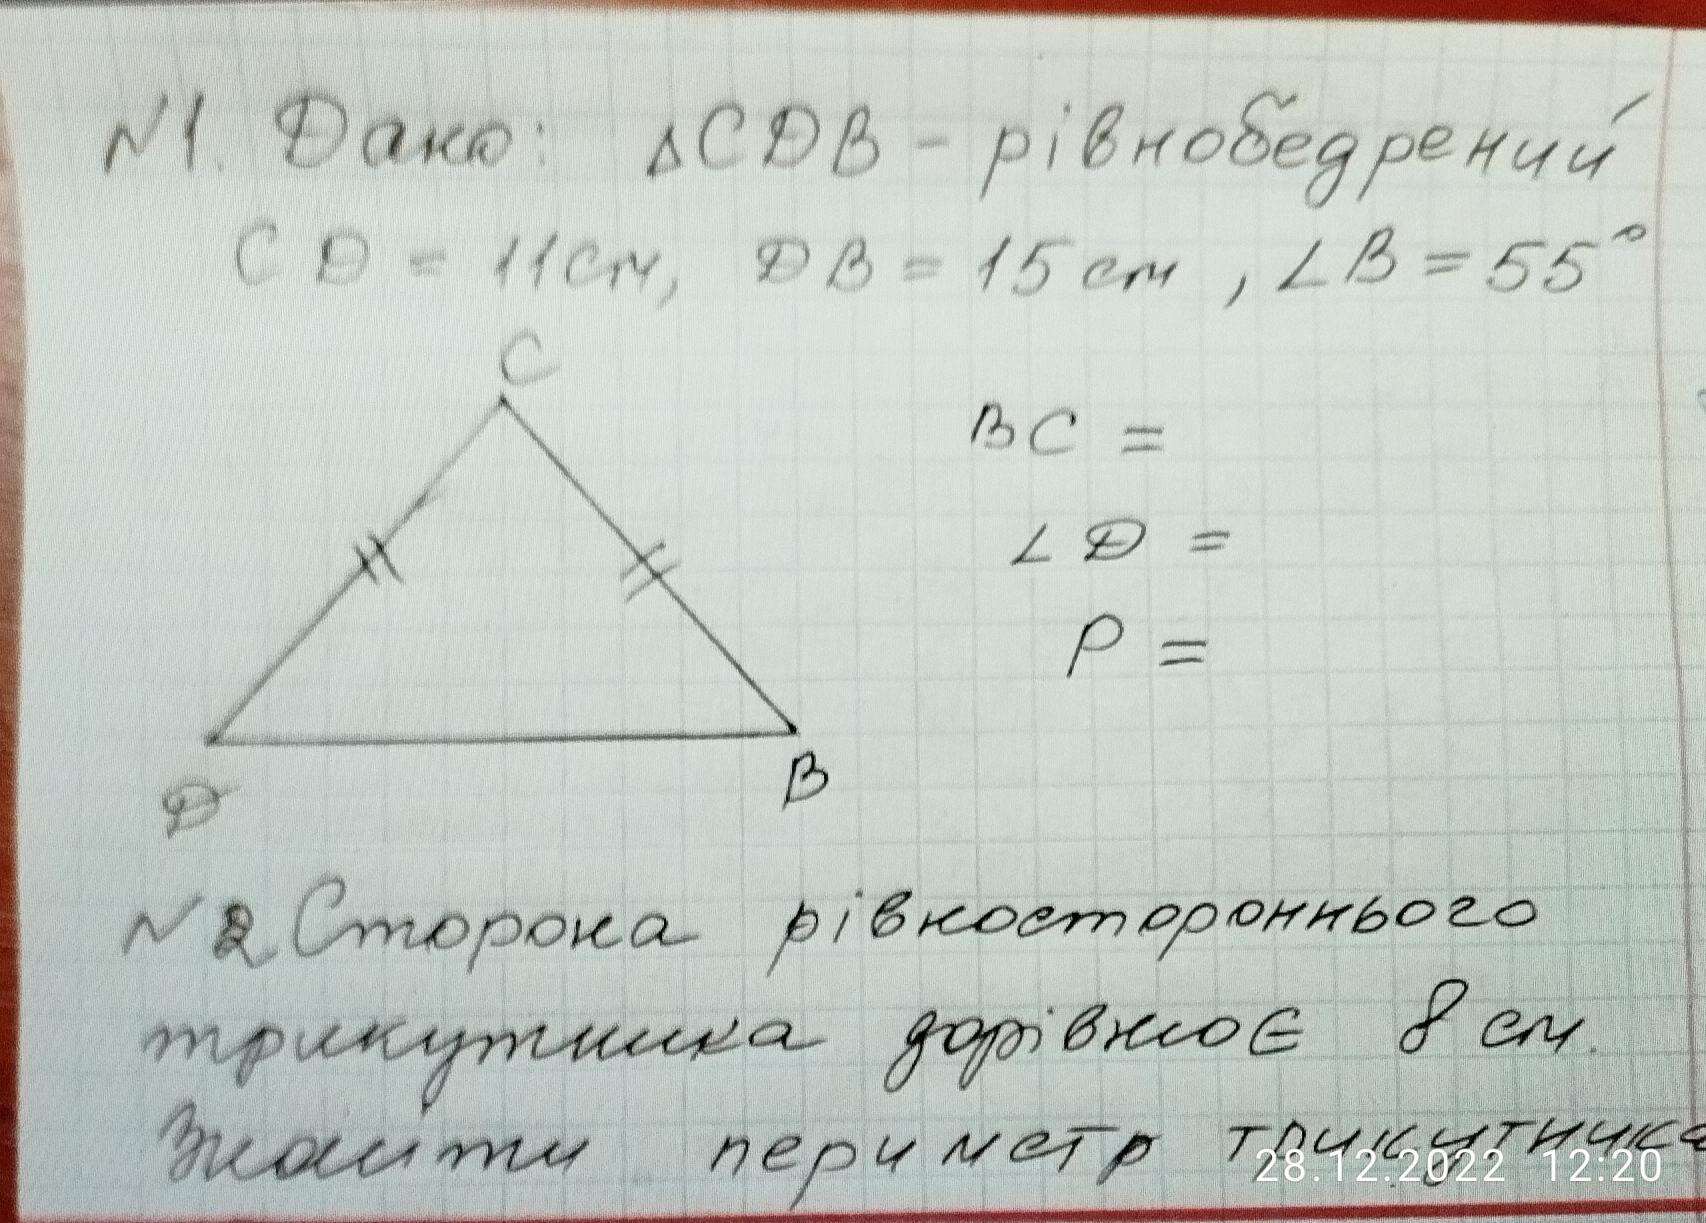 N1. Дано: ΔCDB - рівнобедрений
CD = 11см, DB = 15 см, ∠B = 55°
C
BC =
∠D =
P =
D
B
N 2 Сторона рівностороннього
трикутника дорівнює 8 см.
Знайти периметр трикутника
28.12.2022 12:20